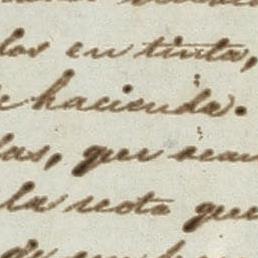 los en tinta,
hacienda.
las, que sean
la nota que